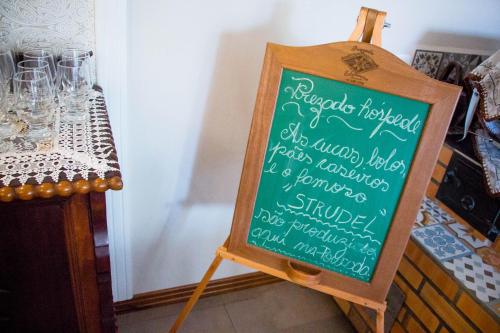 Prezado hóspede
As cucas, bolos,
pães caseiros
e o famoso
"STRUDEL"
são produzidos
aqui na Pousada